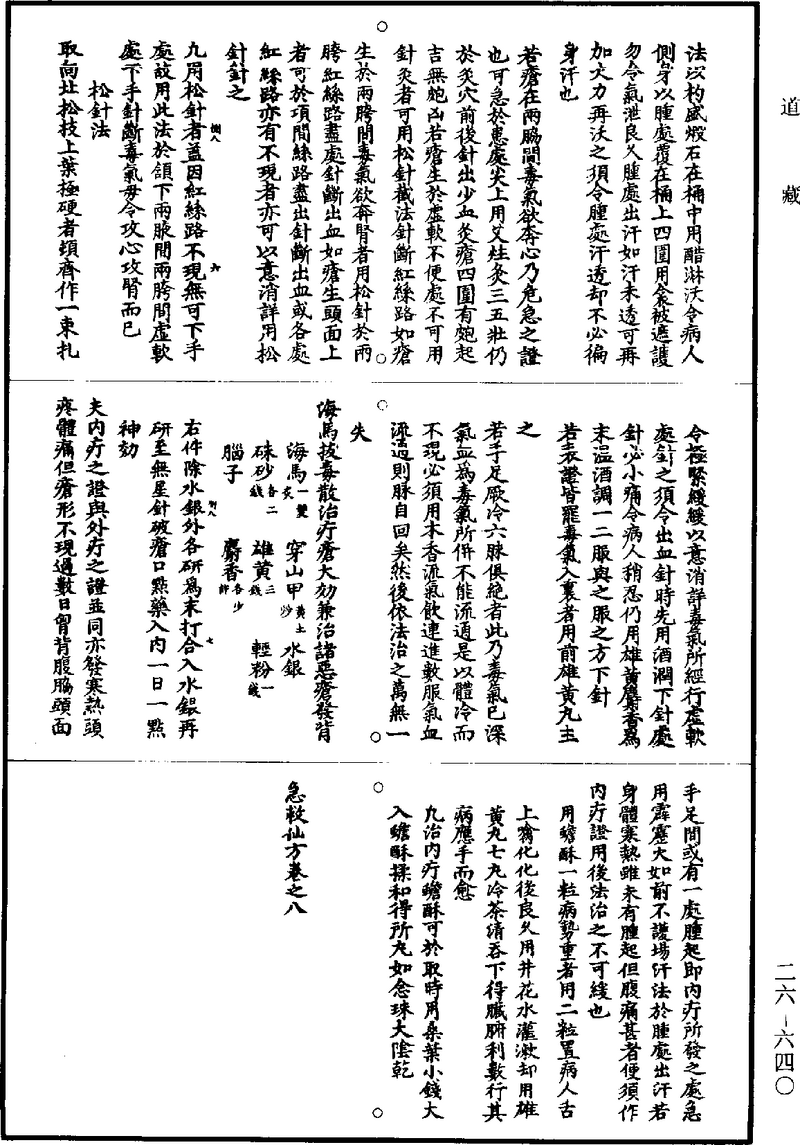 道藏
法以杓盛煅石在桶中用醋淋沃令病人
側身以腫處覆在桶上四圍用衾被遮護
勿令氣泄良久腫處出汗如汗未透可再
加大力再沃之須令腫處汗透却不必徧
身汗也
若瘡在兩脇間毒氣欲奔心乃危急之證
也可急於患處尖上用艾炷灸三五壯仍
於灸穴前後針出少血灸瘡四圍有皰起
吉無皰凶若瘡生於虛軟不便處不可用
針灸者可用松針截法針斷紅絲路如瘡
生於兩胯間毒氣欲奔腎者用松針於兩
胯紅絲路盡處針斷出血如瘡生頭面上
者可於項間絲路盡出針斷出血或各處
紅絲路亦有不現者亦可以意消詳用松
針針之
九用松針者蓋因紅絲路不現無可下手
處故用此法於頷下兩腋間兩胯間虛軟
處下手針斷毒氣毋令攻心攻腎而已
松針法
取向北松枝上葉極硬者頓齊作一束扎
令極緊緩緩以意消詳毒氣所經行虛軟
處針之須令出血針時先用酒潤下針處
針必小痛令病人稍忍仍用雄黃麝香爲
末温酒調一二服與之服之方下針
若表證皆罷毒氣入裏者用前雄黃丸主
之
若手足厥冷六脉俱絶者此乃毒氣已深
氣血爲毒氣所併不能流通是以體冷而
不現必須用木香流氣飲連進數服氣血
流過則脉自回矣然後依法治之萬無一
失
海馬拔毒散治疔瘡大効兼治諸惡瘡發背
海馬一雙炙 穿山甲黃土炒 水銀
硃砂各二錢 雄黃三錢 輕粉一錢
腦子 麝香各少許
右件除水銀外各研爲末打合入水銀再
研至無星針破瘡口點藥入內一日一點
神効
夫内疔之證與外疔之證並同亦發寒熱頭
疼體痛但瘡形不現過數日胷背腹脇頭面
手足間或有一處腫起即内疔所發之處急
用霹靂火如前不護塲汗法於腫處出汗若
身體寒熱雖未有腫起但腹痛甚者便須作
内疔證用後法治之不可緩也
用蟾酥一粒病勢重者用二粒置病人舌
上噙化化後良久用井花水灌漱却用雄
黃丸七丸冷茶清吞下得臟腑利數行其
病應手而愈
九治内疔蟾酥可於取時用桑葉小錢大
入蟾酥揉和得所丸如念珠大陰乾
急救仙方卷之八
二六-六四〇